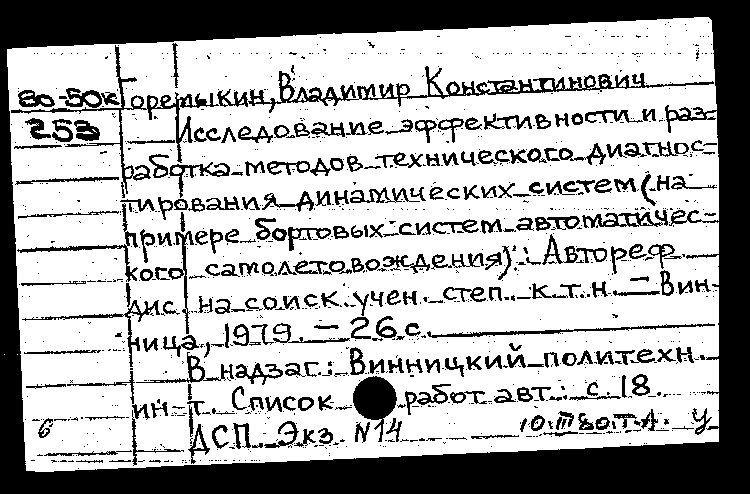 80-50к Горемыкин, Владимир Константинович
253 Исследование эффективности и раз-
работка методов технического диагнос-
тирования динамических систем (на
примере бортовых систем автоматичес-
кого самолетовождения): Автореф
дис. на соиск. учен. степ. к.т.н. — Вин-
ница, 1979. — 26 с.
В надзаг.: Винницкий политехн.
ин-т. Список работ авт.: с. 18.
ДСП. Экз. N14
6 10.III 80.Т.А. У